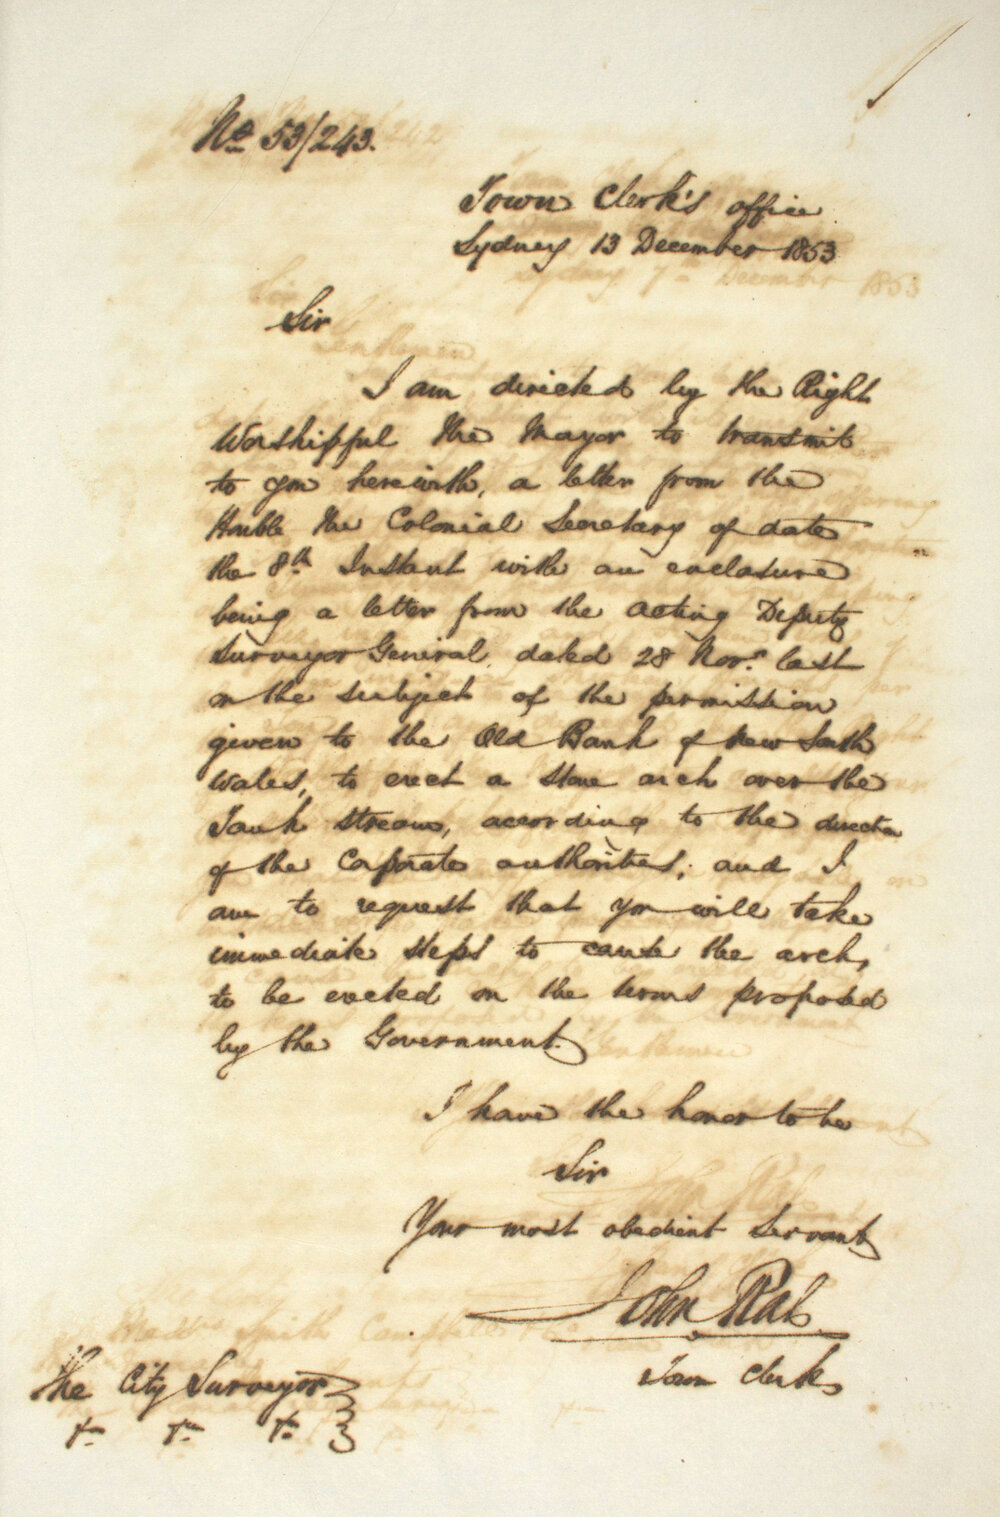 No 53/243.
Town Clerk's office
Sydney 13 December 1853
Sir
I am directed by the Right
Worshipful the Mayor to transmit
to you herewith, a letter from the
Honble the Colonial Secretary of date
the 8th Instant with an enclosure
being a letter from the acting Deputy
Surveyor General, dated 28 Novr. last
on the subject of the permission
given to the Old Bank of New South
Wales, to erect a stone arch over the
Tank stream, according to the direction
of the Corporate authorities; and I
am to request that you will take
immediate steps to cause the arch,
to be erected on the terms proposed
by the Government.
I have the honor to be
Sir
Your most obedient Servant
John Rae
Town Clerk
The City Surveyor